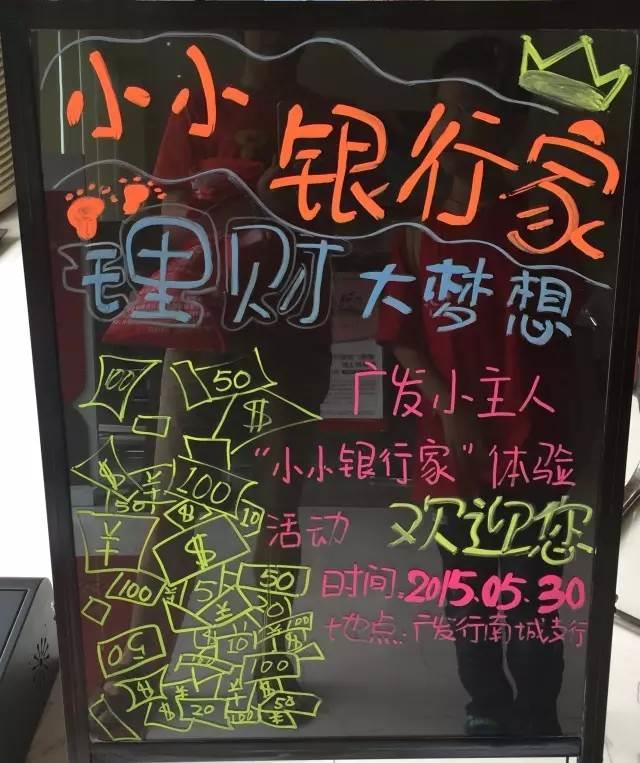 小小
银行家
理财大梦想
广发小主人
“小小银行家”体验
活动 欢迎您
时间:2015.05.30
地点:广发行南城支行
100
50
$
$
¥
100
50
10
¥
$
100
5
50
20
¥
50
10
$
100
$
¥
¥
50
$
20
100
¥